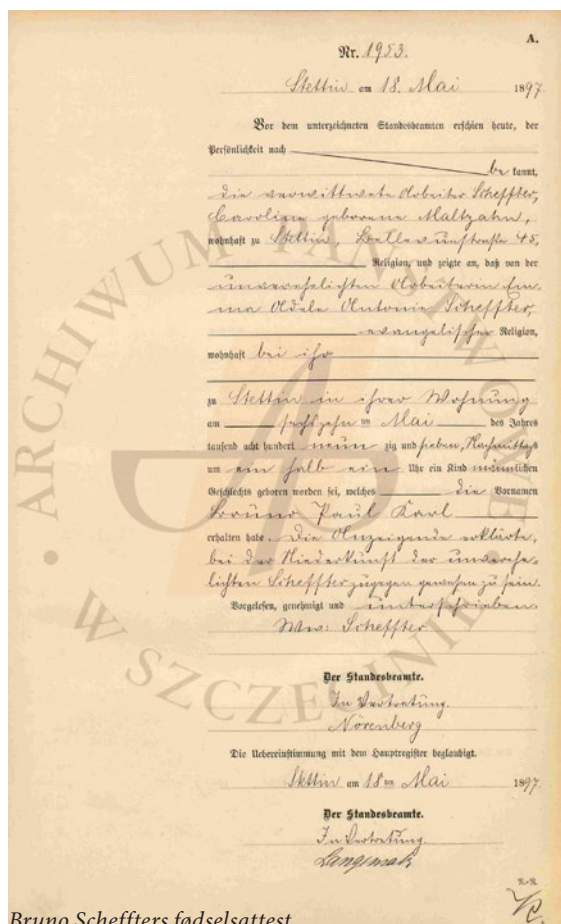 A.
Nr. 1953.
Stettin am 18. Mai 1897.
Vor dem unterzeichneten Standesbeamten erschien heute, der
Persönlichkeit nach
be kannt,
die verwittwete Arbeiter Scheffter,
Caroline geborene Maltzahn,
wohnhaft zu Stettin, Bellevuestraße 45,
Religion, und zeigte an, daß von der
unverehelichten Arbeiterin Em,
ma Adele Antonie Scheffter,
evangelischer Religion,
wohnhaft bei ihr
zu Stettin in ihrer Wohnung
am sechszehn ten Mai des Jahres
tausend acht hundert neun zig und sieben, Nachmittags
um ein halb ein Uhr ein Kind männlichen
Geschlechts geboren worden sei, welches die Vornamen
Bruno Paul Karl
erhalten habe. Die Anzeigende erklärte,
bei der Niederkunft der unverehe,
lichten Scheffter zugegen gewesen zu sein.
Vorgelesen, genehmigt und unterschrieben
Ww: Scheffter
Der Standesbeamte.
In Vertretung.
Nörenberg
Die Uebereinstimmung mit dem Hauptregister beglaubigt.
Stettin am 18 ten Mai 1897.
Der Standesbeamte.
In Vertretung.
Langemak
ARCHIWUM PAŃSTWOWE
W SZCZECINIE
Bruno Scheffters fødselsattest